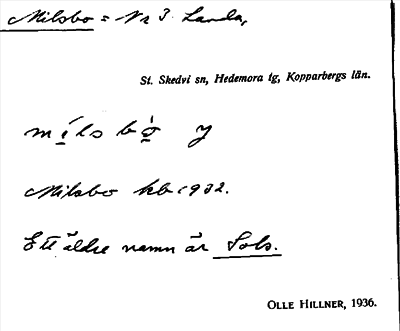 Milsbo = Nr 3 Landa,
St. Skedvi sn, Hedemora tg, Kopparbergs län.
Milsbo kb 1932.
Ett äldre namn är Sols.
OLLE HILLNER, 1936.